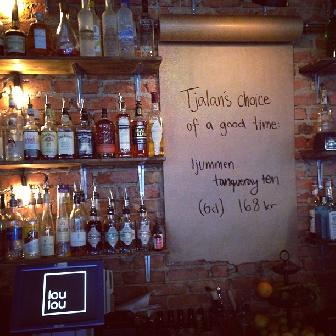 Tjalan's choice
of a good time:
ljummen
tanqueray ten
(6cl) 168 kr
lou
lou